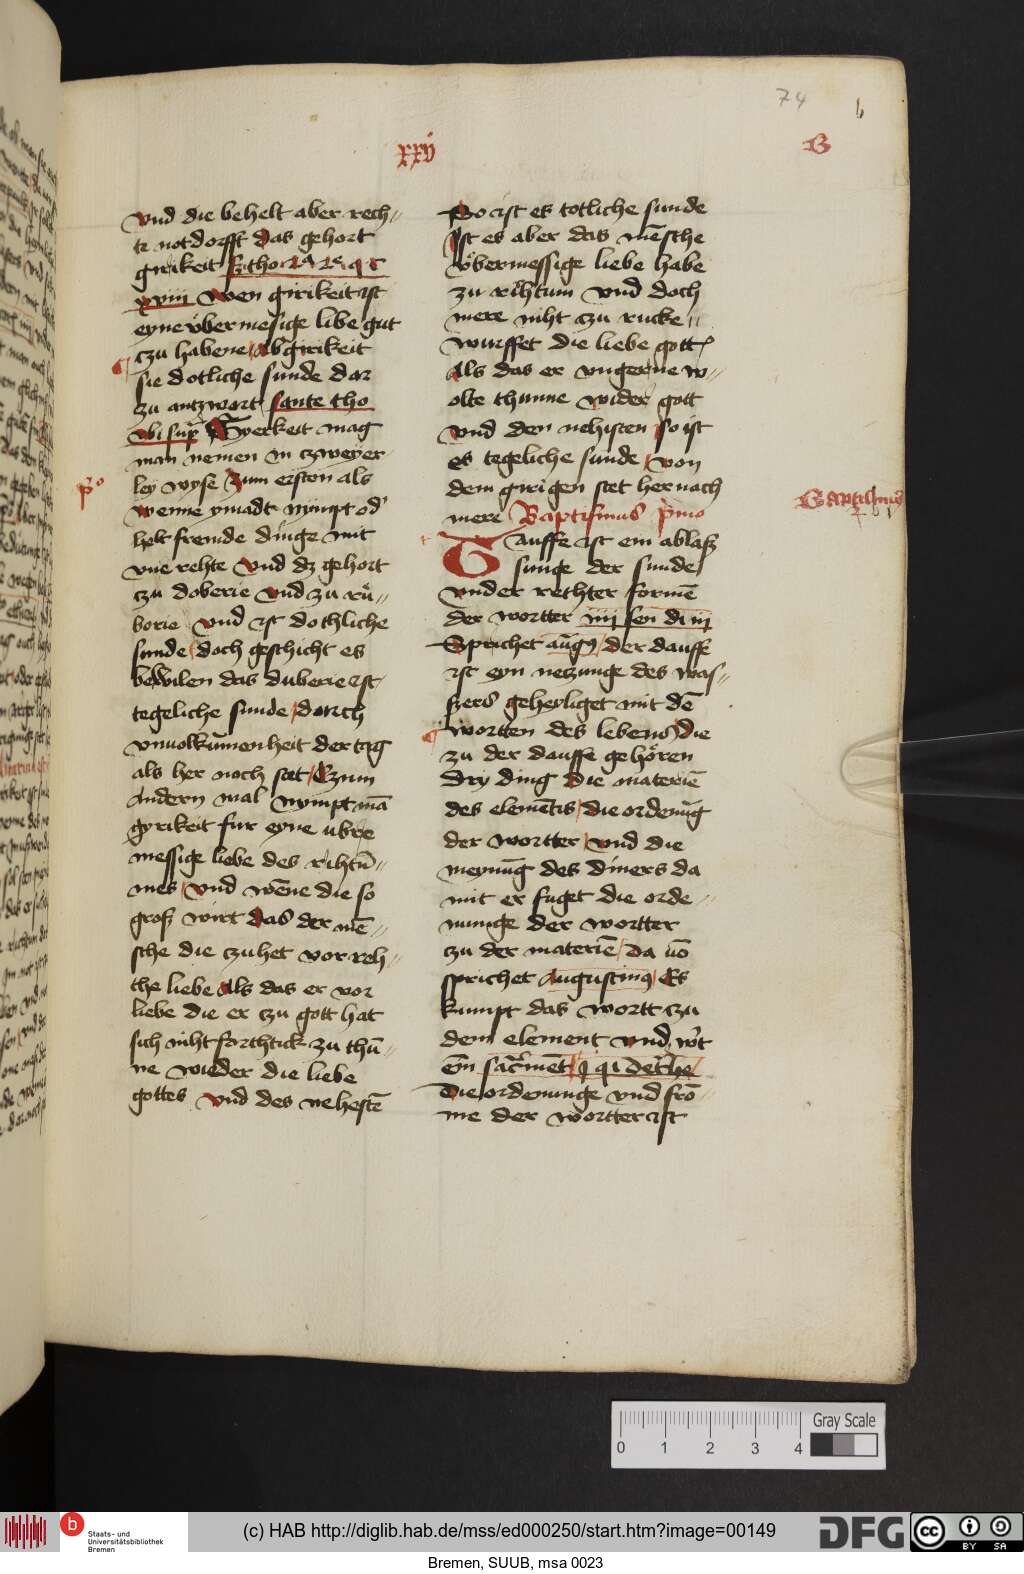 74 b
xxv
B
vnd die behelt aber rech//
te notdorfft das gehort
girikeit
xviij wen girikeit ist
eyne vbermesige libe gut
czu habene Ab girikeit
sie dotliche sunde dar
zu antzwort sante tho
vbi supra Gyerkeit mag
man nemen in czweyer
ley wyse Zum ersten als
pͦ
wenne ymadt nimpt od'
helt fremde dinge mit
vne rehte vnd dz gehort
czu doberie vnd zu rů//
borie vnd ist dothliche
sunde doch geschicht es
bewilen das duberie ist
tegeliche sunde dorch
vnuolkūmenheit der tag
als her noch stet Czum
Andern mal nympt mā
gyrikeit fur eyne ubre
messige liebe des rihtū//
mes vnd wēne die so
grosz wirt das der mē//
sche die czuhet vor reh//
the liebe Als das er vor
liebe die er czu gott hat
sich niht forchtick zu thū//
ne wieder die liebe
gottes vnd des nehestē
So ist es totliche sunde
Ist es aber das mēsche
vbermessige liebe habe
zu rihtum vnd doch
mere niht czu rucke//
wurffet die liebe gott
Als das er vngerne w//
olte thunne wider gott
vnd den nehisten so ist
es tegeliche sunde von
dem girigen stet hernach
mere Baptismus pͥmo
Baptismus
Tauffe ist ein ablasz
sunge der sunde
vnder rechter formē
der wortter iiij sen di iij
Sprichet aūgꝰ der dauff
ist eyn netzunge des was//
szers geheyliget mit dē
wortten des lebens die
zu der dauffe gehören
dry ding die materiē
des elemētis die ordenūg
der wortter vnd die
meynūg des diners da
mit er fuget die orde//
nunge der wortter
czu der materiē da uō
sprichet Augustinꝰ Es
kumpt das wortt czu
dem element vnd w't
eī sac̄mēt
Die ordenunge vnd fro//
me der wortter ist
0 1 2 3 4
Gray Scale
b
Staats- und
Universitätsbibliothek
Bremen
(c) HAB http://diglib.hab.de/mss/ed000250/start.htm?image=00149
DFG
cc BY SA
Bremen, SUUB, msa 0023